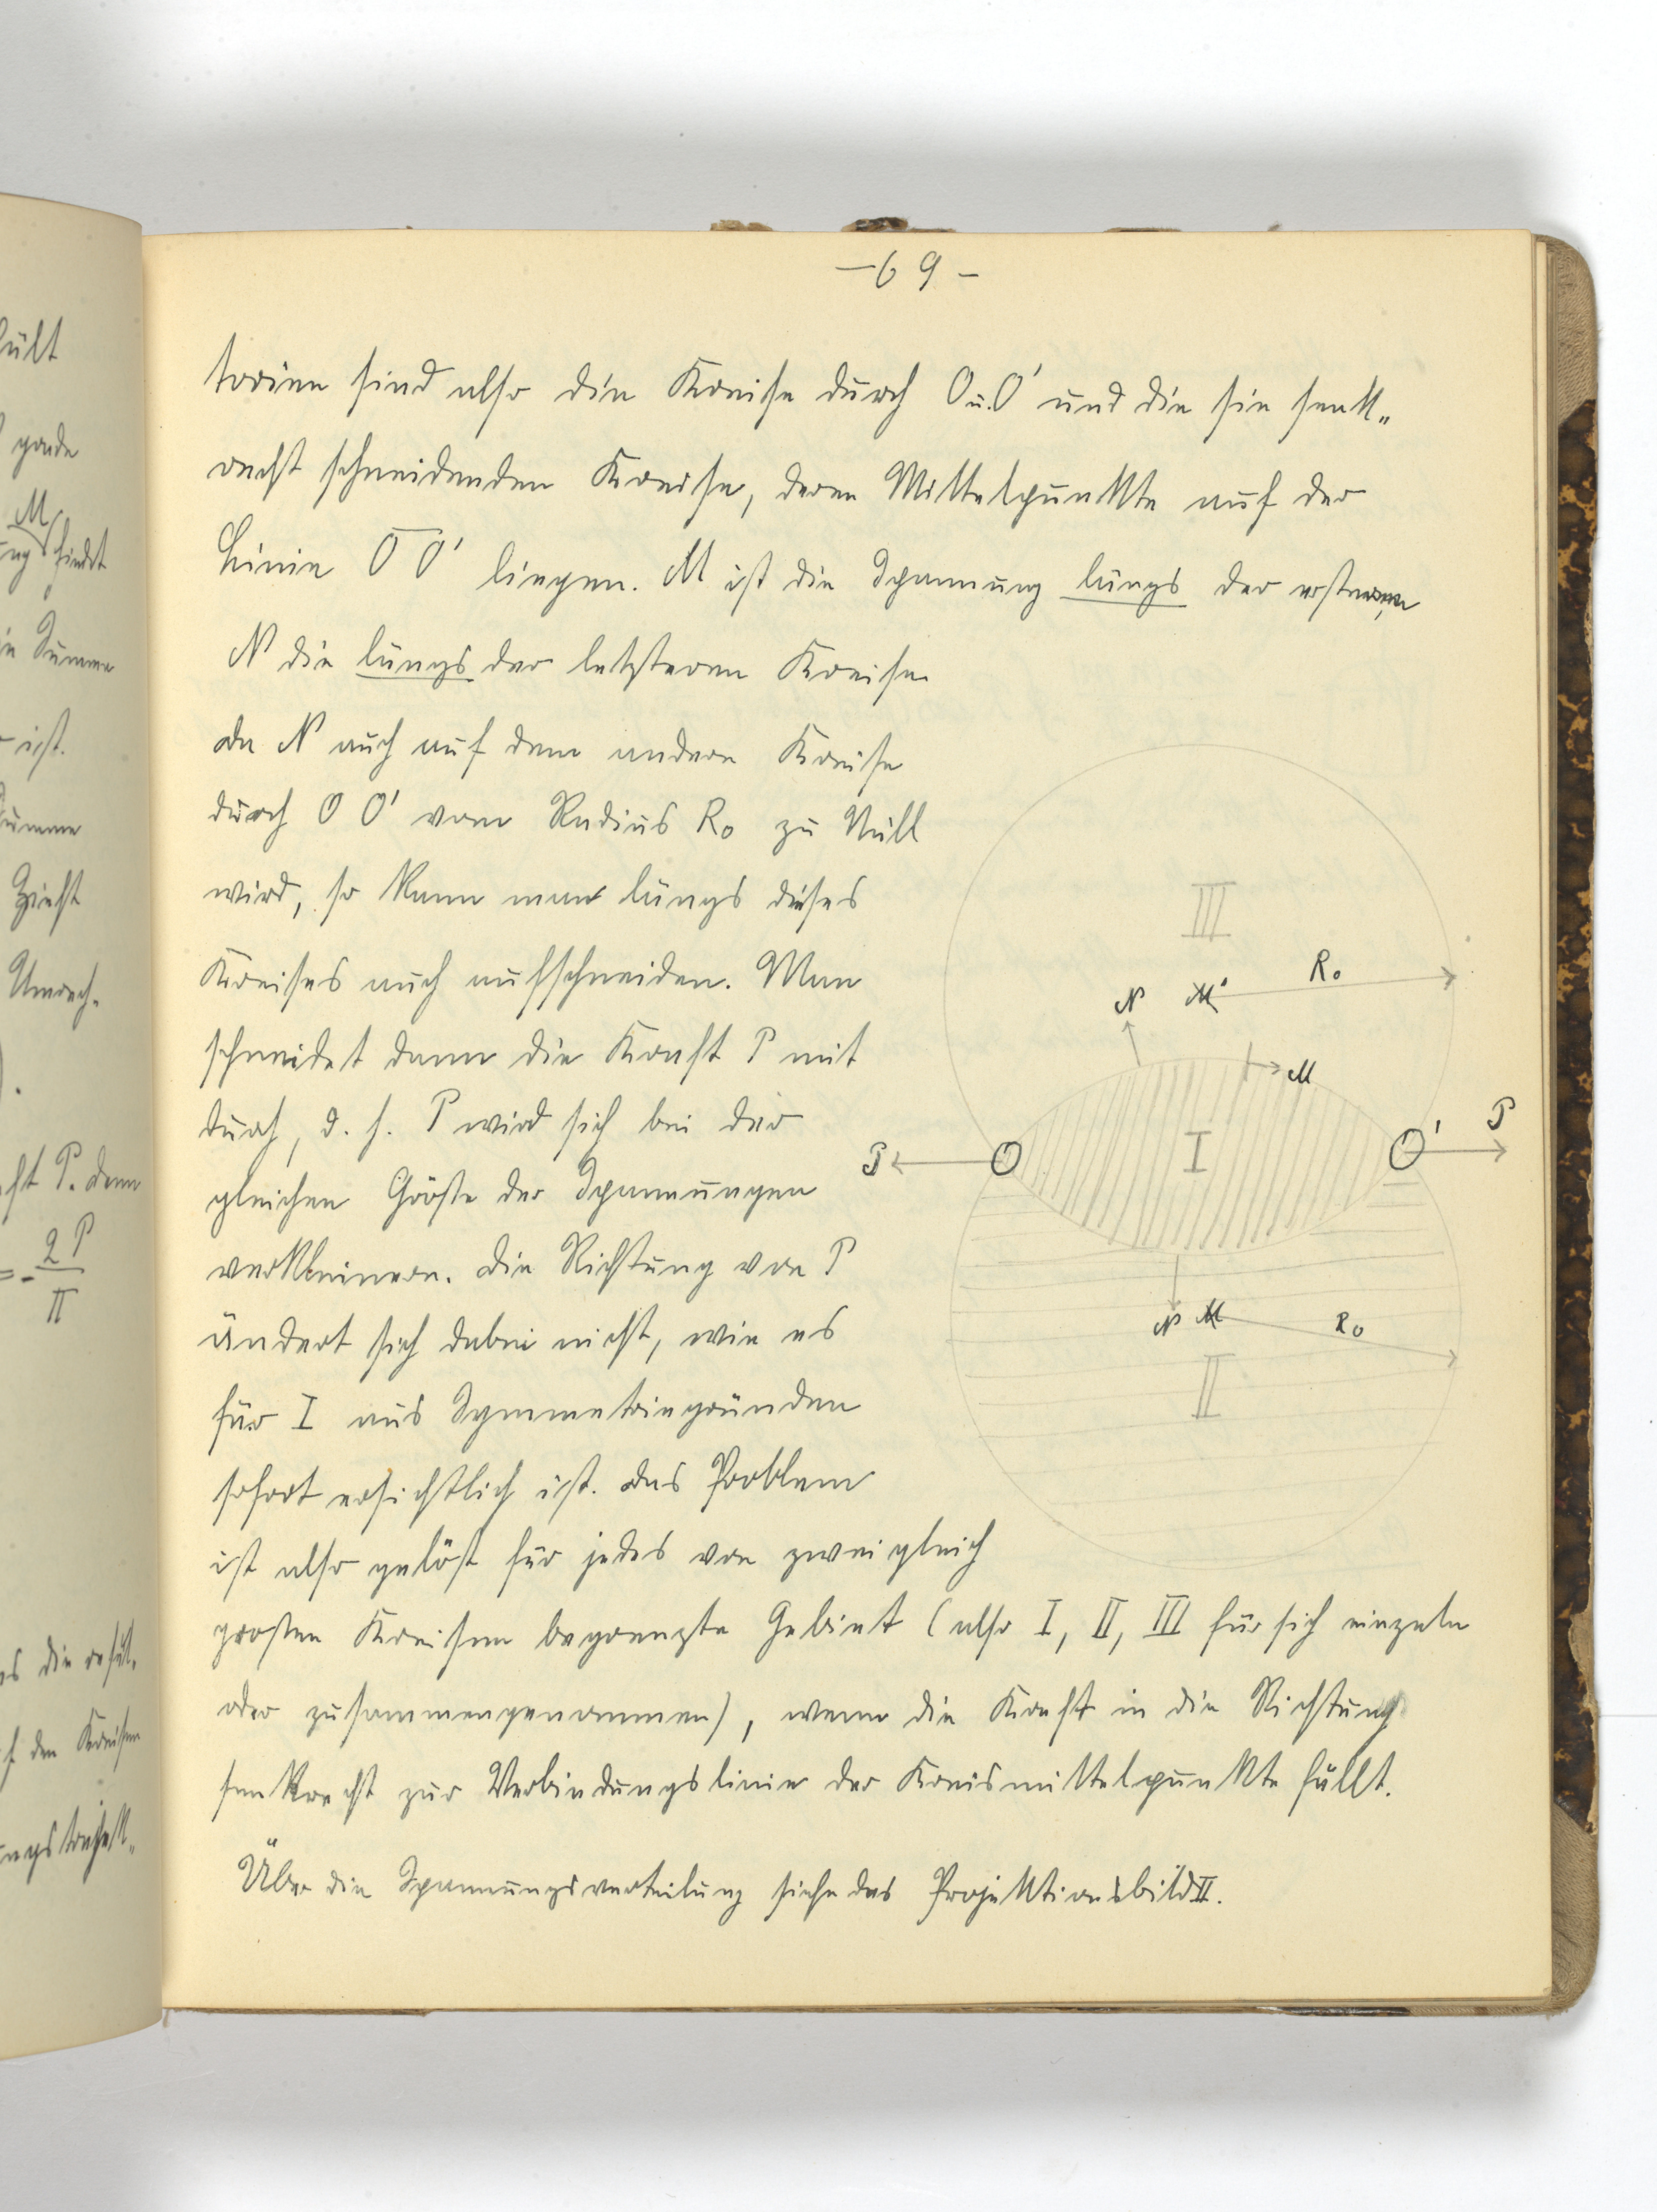 - 69 -
torien sind also die Kreise durch O u. O' und die sie senk„
recht schneidenden Kreise, deren Mittelpunkte auf der
Linie O O' liegen. M ist die Spannung längs der ersteren,
N die längs der letzteren Kreise
da N auch auf dem andern Kreise
durch O O' vom Radius R₀ zu Null
wird, so kann man längs dieses
Kreises auch aufschneiden. Man
schneidet dann die Kraft P mit
durch, d. h. P wird sich bei der
gleichen Größe der Spannungen
verkleinern. Die Richtung von P
ändert sich dabei nicht, wie es
für I aus Symmetriegründen
sofort ersichtlich ist. Das Problem
ist also gelöst für jedes von zwei gleich
großen Kreisen begrenzte Gebiet (also I, II, III für sich einzeln
oder zusammengenommen), wenn die Kraft in die Richtung
senkrecht zur Verbindungslinie der Kreismittelpunkte fällt.
Über die Spannungsverteilung siehe das Projektionsbild II.
III
N M' R₀
M
P O I O' P
N M R₀
II
ült
M
findet
Summe
ist.
Zieht
P. denn
= - 2P
π
den Kreisen